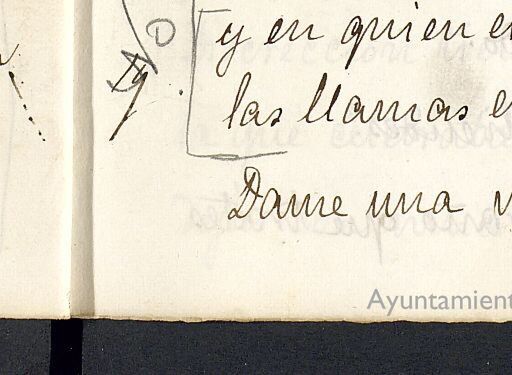 y en quien e
las llamas e
Dame una
Ayuntamient